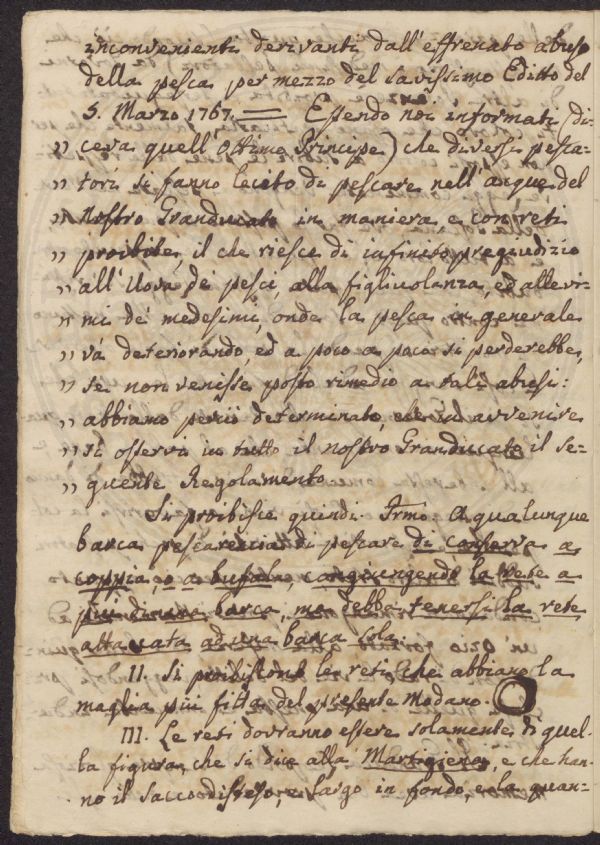 inconvenienti derivanti dall'effrenato abuso
della pesca per mezzo del savissimo Editto del
5. Marzo 1767. == Essendo noi informati (di=
„ ceva quell'Ottimo Principe) che diversi pesca=
„ tori si fanno lecito di pescare nell'acque del
„ Nostro Granducato in maniera, e con reti
„ proibite, il che riesce di infinito pregiudizio
„ all'Uova de' pesci, alla figliuolanza, ed allevi=
„ mi de' medesimi, onde la pesca in generale
„ và deteriorando, ed a poco a poco si perderebbe,
„ se non venisse posto rimedio a tali abusi:
„ abbiamo perciò determinato, che in avvenire
„ si osservi in tutto il nostro Granducato il se=
„ guente Regolamento
Si proibisce quindi Irmo. A qualunque
barca pescareccia di pescare di conserva a
coppia, o a bufala, congiungendo la rete a
più di una barca, ma debba tenersi la rete
attaccata ad una barca sola.
II. Si proibiscono le reti, che abbiano la
maglia più fitta del presente Modano.
III. Le reti dovranno essere solamente di quel=
la figura, che si dice alla Martigiena, e che han=
no il sacco disteso, e largo in fondo, e la quan=